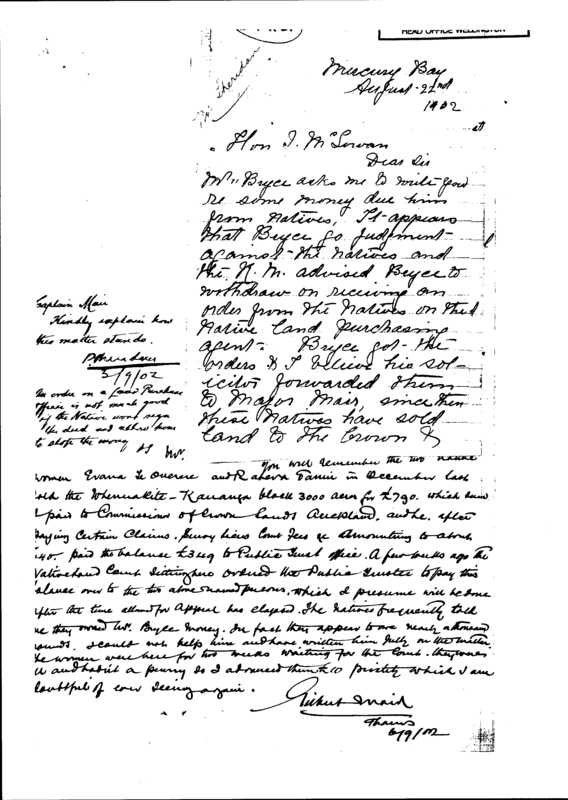 HEAD OFFICE WELLINGTON
Mr Sheridan
Mercury Bay
August 22nd
1902
Hon J. McGowan
Dear Sir
Mr Bryce asks me to write you
re some money due him
from Natives, It appears
that Bryce go judgment
against the natives and
the R. M. advised Bryce to
withdraw on reciving an
order from the Natives on the
Native land purchasing
agent. Bryce got the
orders & I believe his sol-
icitor forwarded them
to Major Mair, since then
these Natives have sold
land to the Crown &
Captain Mair
Kindly explain how
this matter stands.
P Sheridan
3/9/02
An order on a Land Purchase
officer is not much good
if the Native wont sign
the deed and allow him
to stop the money
You will remember the two native
women Te and in December last
sold the Whenuakite - Kauanga block 3000 acres for £790. which sum
I paid to Commissioner of Crown Lands Auckland, and he, after
paying certain claims, Survey liens Court Fees &c amounting to about
paid the balance to Public Trust office. A few weeks ago the
Native Land Court sitting here ordered the Public Trustee to pay this
balance over to the two above named persons, which I presume will be done
after the time allowed for Appeal has elapsed. The Natives frequently told
me they owed Mr. Bryce money. In fact they appear to owe nearly a thousand
pounds. I could not help him and have written him fully on the matter
the women were here for two weeks waiting for the Court. they were
and hadnt a penny so I advanced them £10 jointly which I am
doubtful of ever seeing again.
Gilbert Mair
Thames
6/9/02